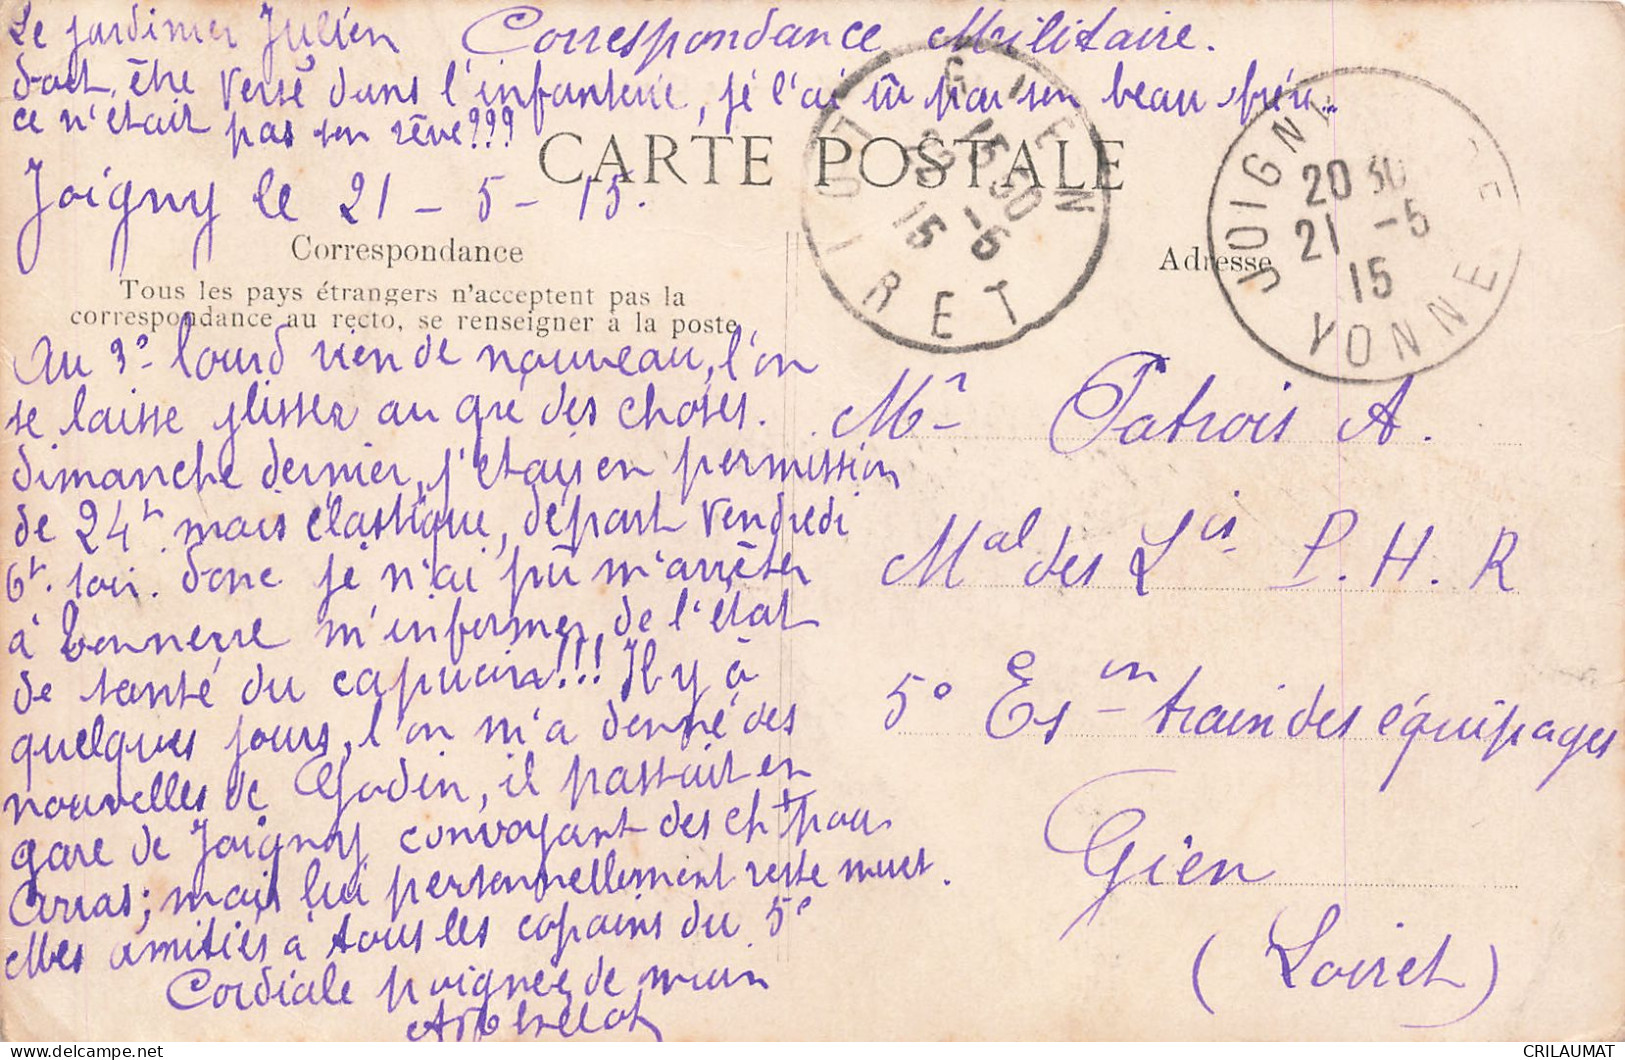 Le jardinier Julien Correspondance Militaire.
doit être versé dans l'infanterie, je l'ai sû par son beau frère..
ce n'était pas son rêve???
CARTE POSTALE
Joigny le 21 - 5 - 15.
Correspondance
Adresse
Tous les pays étrangers n'acceptent pas la
correspondance au recto, se renseigner à la poste
GIEN
15 30
20 -5
15
LOIRET
JOIGNY
20 30
21 -5
15
YONNE
Au 3e lourd rien de nouveau, l'on
se laisse glisser au gré des choses.
dimanche dernier, j'étais en permission
de 24h mais élastique, départ Vendredi
6h soir. donc je n'ai pû m'arrêter
à Tonnerre m'informer de l'état
de santé du capucin!!! Il y à
quelques jours, l'on m'a donné des
nouvelles de Godin, il passait en
gare de Joigny convoyant des chx pour
Arras; mais lui personnellement reste muet.
Mes amitiés à tous les copains du 5e
Cordiale poignée de main
Mr Patrois A.
Mal des Lis P. H. R
5e Esn train des équipages
Gien
(Loiret)
CRILAUMAT